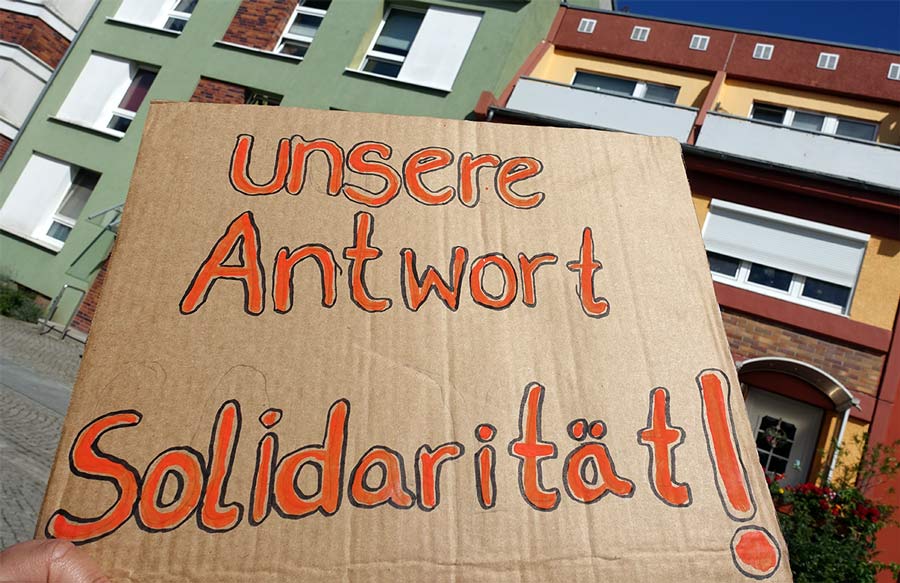 unsere
Antwort
Solidarität!